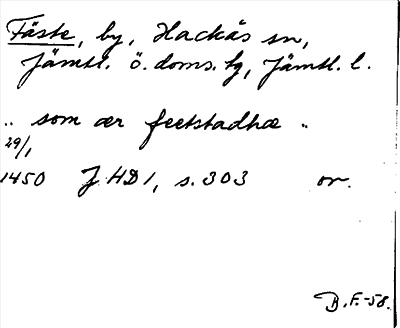 Fäste, by, Hackås sn,
Jämtl. ö. doms. tg, Jämtl. l.
„ som ær feetstadhæ „
29/1
1450 JHD 1, s. 303 or.
B. F. -58.